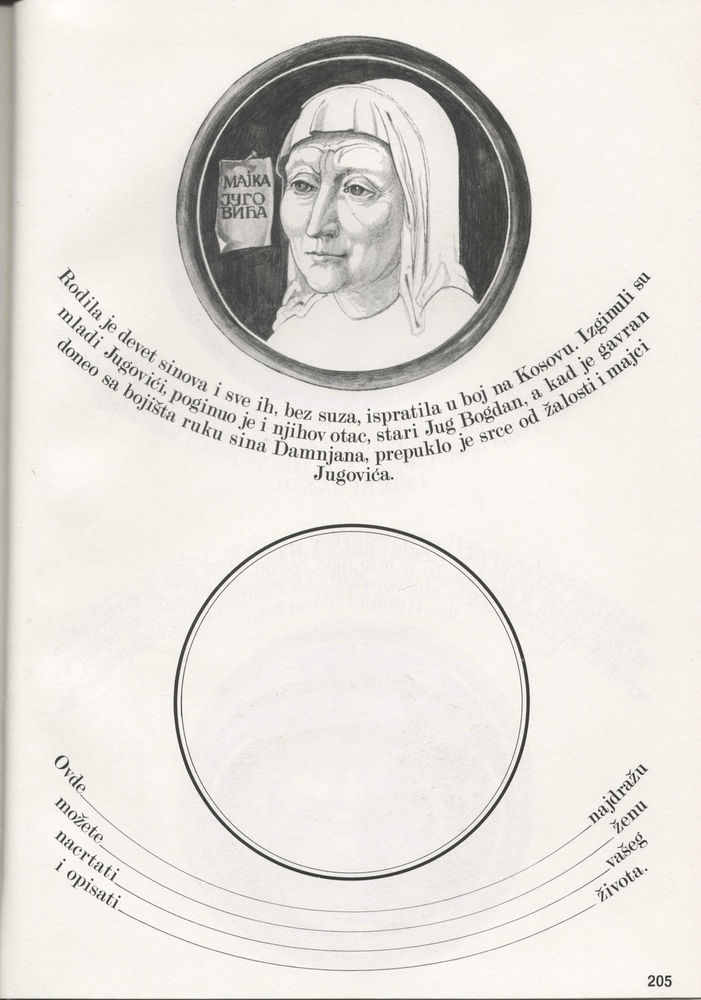 МАЈКА
ЈУГО
ВИЋА
Rodila je devet sinova i sve ih, bez suza, ispratila u boj na Kosovu. Izginuli su
mladi Jugovići, poginuo je i njihov otac, stari Jug Bogdan, a kad je gavran
doneo sa bojišta ruku sina Damnjana, prepuklo je srce od žalosti i majci
Jugovića.
Ovde najdražu
možete ženu
nacrtati vašeg
i opisati života.
205